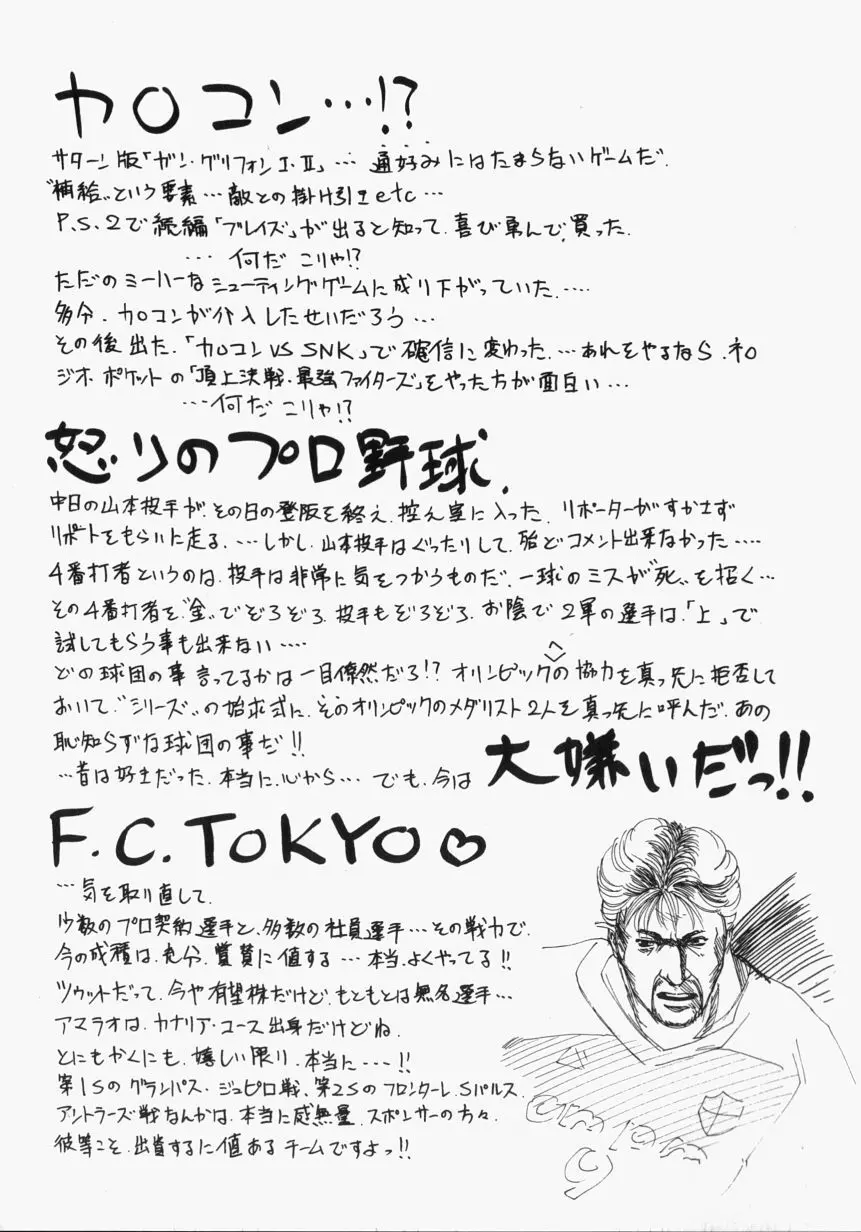 カロコン…!?
サターン版「ガン・グリフォンⅠ・Ⅱ」… 通好みにはたまらないゲームだ.
"補給"という要素…敵との掛け引きetc…
P.S.2で続編「ブレイズ」が出ると知って.喜び勇んで.買った.
…何だ こりゃ!?
ただのミーハーなシューティングゲームに成り下がっていた.….
多分.カロコンが介入したせいだろう…
その後出た.「カロコンVS SNK」で確信に変わった.…あれをやるなら.ネロ
ジオ.ポケットの「頂上決戦.最強ファイターズ」をやった方が面白い…
…何だ こりゃ!?
怒りのプロ野球.
中日の山本投手が.その日の登板を終え.控え室に入った. リポーターがすかさず
リポートをもらいに走る.…しかし.山本投手はぐったりして.殆どコメント出来なかった….
4番打者というのは.投手は非常に気をつかうものだ.一球のミスが"死"を招く…
その4番打者を"金"でぞろぞろ.投手もぞろぞろ.お陰で2軍の選手は.「上」で
試してもらう事も出来ない….
どの球団の事言ってるかは一目瞭然だろ!? オリンピックへの協力を真っ先に拒否して
おいて."シリーズ"の始球式に.そのオリンピックのメダリスト2人を真っ先に呼んだ.あの
恥知らずな球団の事だ!!
…昔は好きだった.本当に.心から… でも.今は 大嫌いだっ!!
F.C.TOKYO♡
…気を取り直して.
少数のプロ契約選手と.多数の社員選手…その戦力で.
今の成績は.充分.賞賛に値する…本当.よくやってる!!
ツゥットだって.今や有望株だけど.もともとは無名選手…
アマラオは.カナリア・ユース出身だけどね.
とにもかくにも.嬉しい限り.本当に…!!
第1Sのグランパス・ジュビロ戦、第2Sのフロンターレ.Sパルス.
アントラーズ戦なんかは.本当に感無量.スポンサーの方々.
彼等こそ.出資するに値あるチームですよっ!!
9